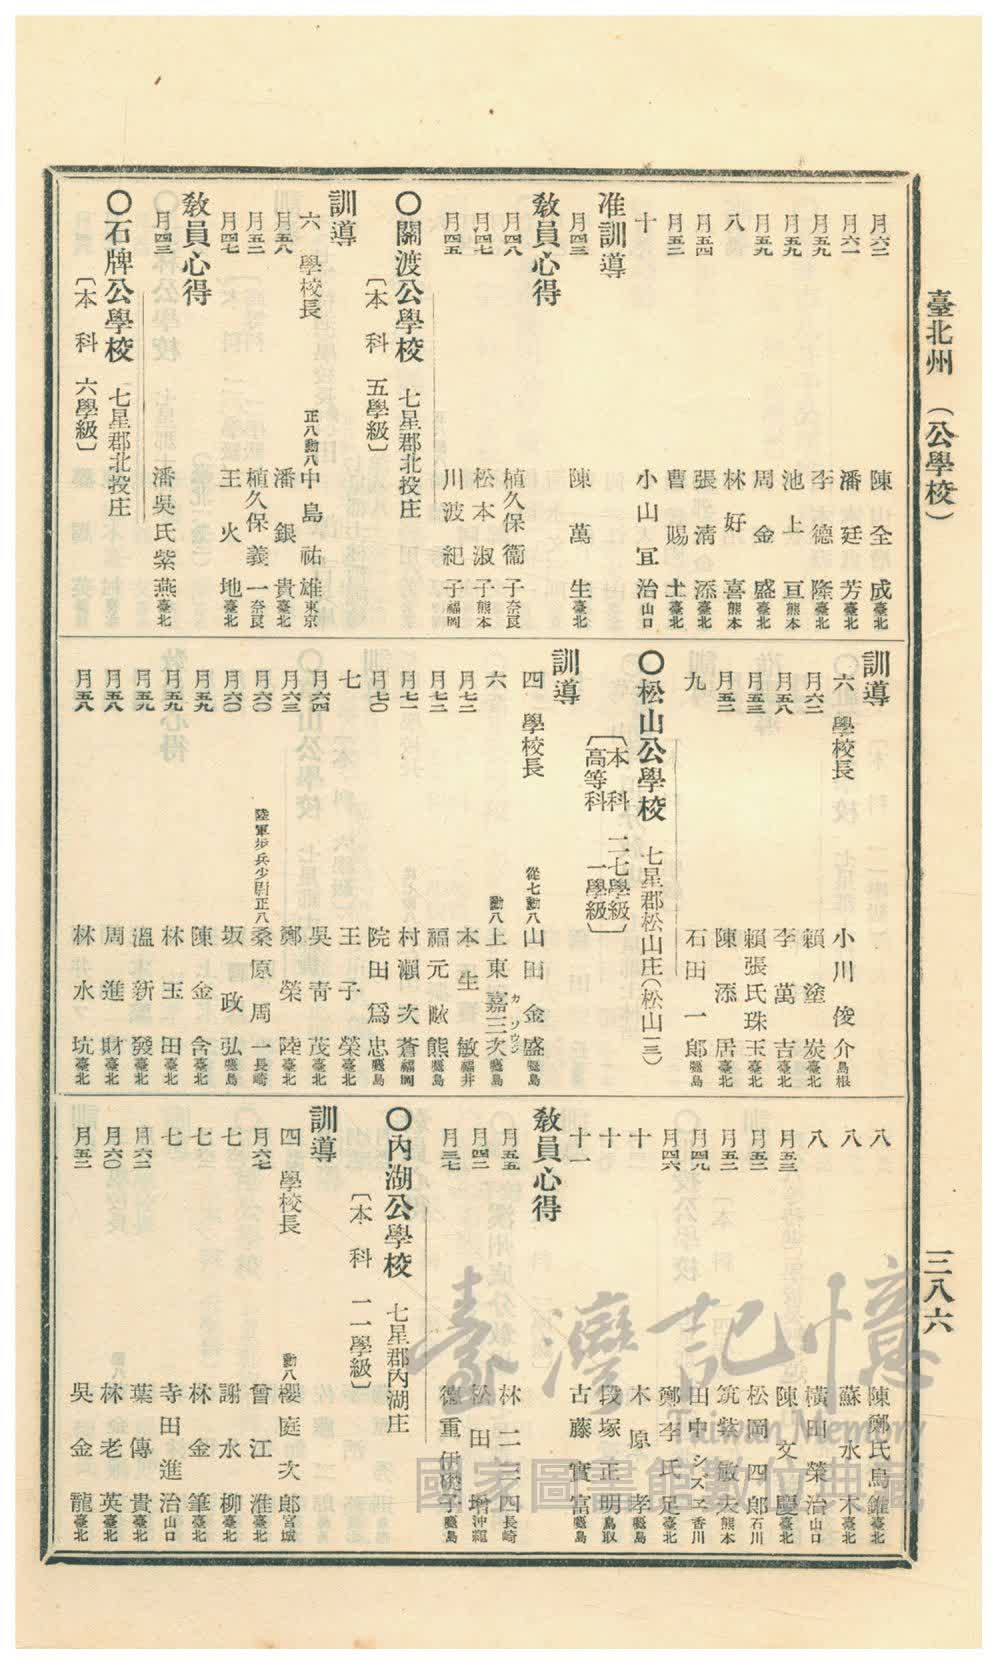 臺北州 (公學校)
三八六
月六二 陳全成 臺北
月六一 潘廷芳 臺北
月五九 李德隆 臺北
月五九 池上亘 熊本
月五九 周金盛 臺北
八 林好喜 熊本
月五四 張淸添 臺北
月五二 曹賜土 臺北
十 小山宜治 山口
准訓導
月四三 陳萬生 臺北
敎員心得
月四八 植久保衞子 奈良
月四七 松本淑子 熊本
月四五 川波紀子 福岡
〇關渡公學校 七星郡北投庄
〔本科 五學級〕
訓導
六 學校長 正八勳八 中島祐雄 東京
月五八 潘銀貴 臺北
月五二 植久保義一 奈良
月四七 王火地 臺北
敎員心得
月四三 潘吳氏紫燕 臺北
〇石牌公學校 七星郡北投庄
〔本科 六學級〕
訓導
六 學校長 小川俊介 島根
月六二 賴塗炭 臺北
月五八 李萬吉 臺北
月五三 賴張氏珠玉 臺北
月五二 陳添居 臺北
九 石田一郎 鹿兒島
〇松山公學校 七星郡松山庄(松山一三)
〔本科 二七學級
高等科 一學級〕
訓導
四 學校長 從七勳八 山田金盛 鹿兒島
六 勳八 上東嘉三次 カソウジ 鹿兒島
月七二 本生敏 福井
月七二 福元畩熊 鹿兒島
月七一 村瀨次蒼 福岡
月七〇 院田爲忠 鹿兒島
七 王子榮 臺北
月六四 吳靑茂 臺北
月六三 鄭榮陸 臺北
月六〇 陸軍步兵少尉正八 桑原周一 長崎
月六〇 坂政弘 鹿兒島
月五九 陳金含 臺北
月五九 林玉田 臺北
月五九 溫新發 臺北
月五八 周進財 臺北
月五八 林水坑 臺北
八 陳鄭氏烏錐 臺北
八 蘇水木 臺北
八 橫田榮治 山口
月五三 陳文慶 臺北
月五二 松岡四郎 石川
月五二 筑紫敏夫 熊本
月四九 田中シズヱ 香川
月四六 鄭李氏足 臺北
十 木原孝 鹿兒島
十 段塚正明 鳥取
十一 古藤實富 鹿兒島
敎員心得
月五五 林二三四 長崎
月四二 松田增 沖繩
月三七 德重伊從子 鹿兒島
〇內湖公學校 七星郡內湖庄
〔本科 一一學級〕
訓導
四 學校長 勳八 櫻庭次郎 宮城
月六七 曾江淮 臺北
七 謝水柳 臺北
七 林金筆 臺北
七 寺田進治 山口
月六二 葉傳貴 臺北
月六〇 林老英 臺北
月五二 吳金龍 臺北
臺灣記憶
Taiwan Memory
國家圖書館數位典藏